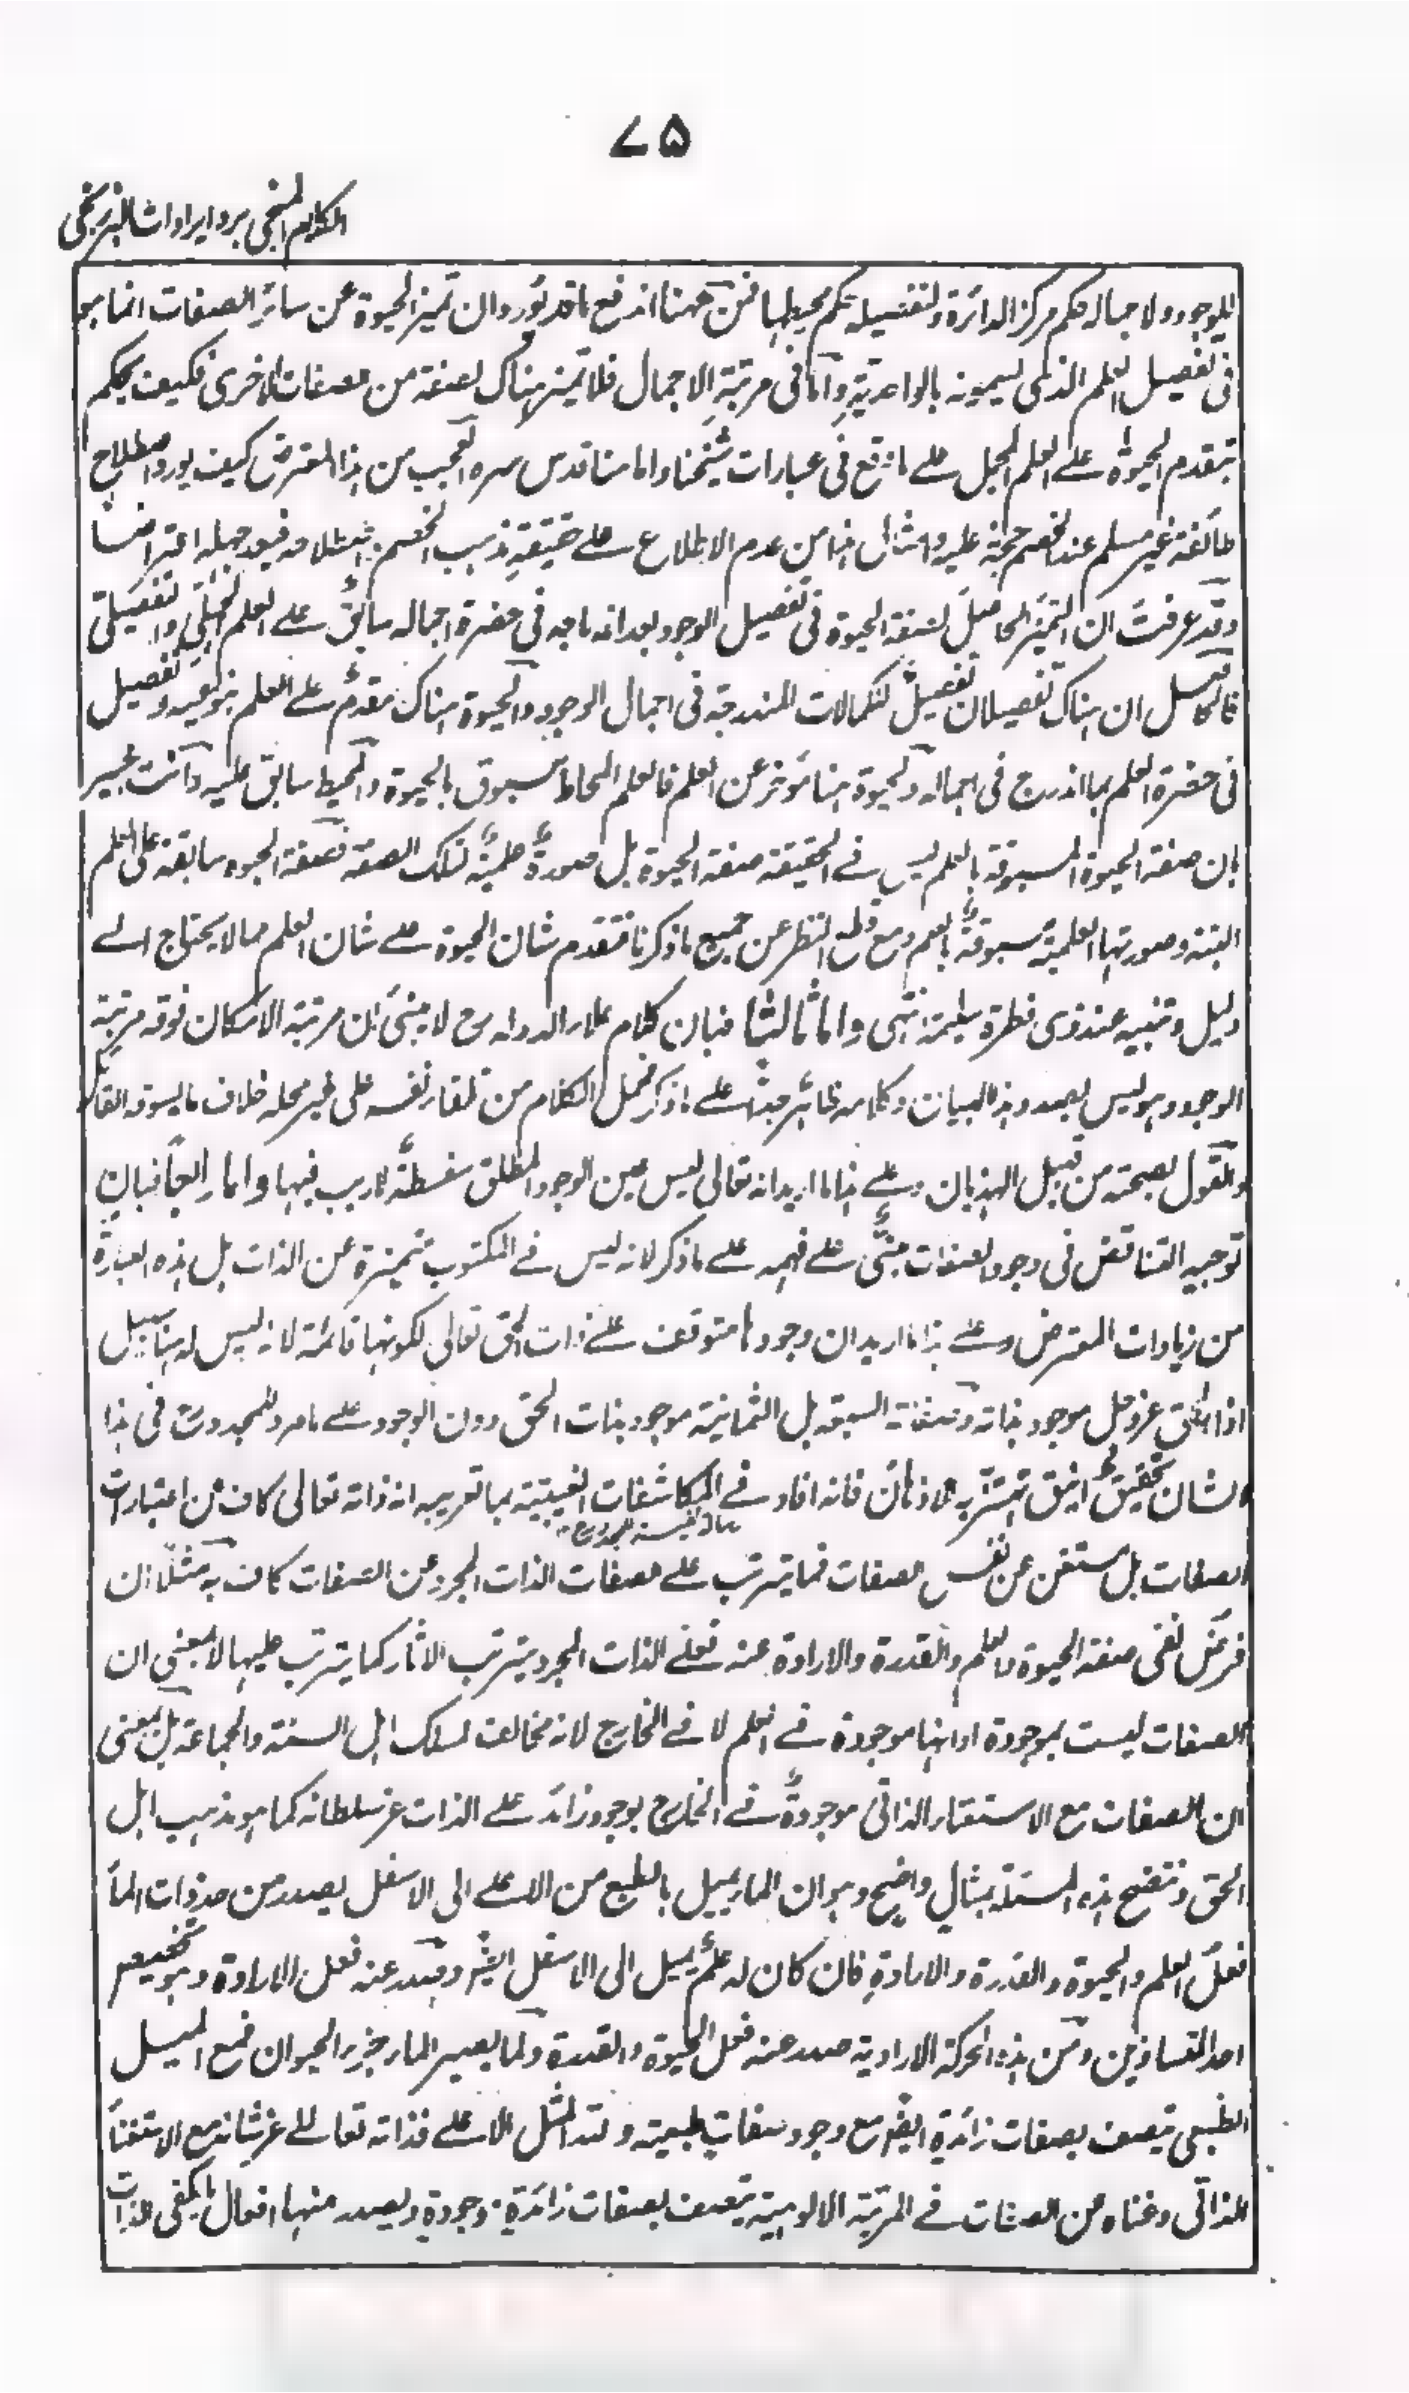 ۷۵
الكلام المنجي برد ايرادات البرزنجي
للوجود ولاجماله حكم مركز الدائرة ولتفصيله حكم محيطها فمن ههنا اندفع ما قد يورد وان تميز الحيوة عن سائر الصفات انما هو
فى تفصيل العلم الذى يسمونه بالواحدية واما فى مرتبة الاجمال فلا تميز هناك لصفة من صفات الاخرى فكيف يحكم
بتقدم الحيوة على العلم المجمل على ما وقع فى عبارات شيخنا وامامنا قدس سره العجب من هذا المعترض كيف يورد اصطلاح
طائفة غير مسلم عند الخصم حجة عليه وامثال هذا من عدم الاطلاع على حقيقة مذهب الخصم فيعد جهله اعتراضا
وقد عرفت ان التميز الحاصل لصفة الحيوة فى تفصيل الوجود بعد اندماجه فى حضرة اجماله سابق على العلم الجملى والتفصيلى
فالحاصل ان هناك تفصيلان تفصيل للكمالات المندرجة فى اجمال الوجود والحيوة هناك مقدم على العلم بنوعيه وتفصيل
فى حضرة العلم بما اندرج فى اجماله والحيوة هنا مؤخر عن العلم فالعلم المحاط مسبوق بالحيوة والمحيط سابق عليه وانت خبير
بان صفة الحيوة المسبوقة بالعلم ليس فى الحقيقة صفة الحيوة بل صورة علمية لتلك الصفة فصفة الحيوة سابقة على العلم
البتة وصورتها العلمية مسبوقة بالعلم ومع قطع النظر عن جميع ما ذكرنا فتقدم شان الحيوة على شان العلم مما لا يحتاج الى
دليل وتنبيه عند ذوى فطرة سليمة انتهى واما ثالثا فبان كلام علاء الدوله رح لا مبنى بان مرتبة الامكان فوقه مرتبة
الوجود وهو ليس بصدد هذا البيان وكلامه ظاهر جدا على ما ذكر فحمل الكلام من تلقاء نفسه على غير محله خلاف ما يسوقه القائل
والقول بصحته من قبيل الهذيان وعلى هذا ما اريد انه تعالى ليس عين الوجود المطلق سفسطة لا ريب فيها واما رابعا فبان
توجيه التناقض فى وجود الصفات مبنى على فهمه على ما ذكر لانه ليس فى المكتوب متميزة عن الذات بل هذه العبارة
من زيادات المعترض وعلى هذا ما اريد ان وجودها متوقف على ذات الحق تعالى لكونها قائمة لانه ليس له هنا سبيل
اذ الحق عز وجل موجود بذاته وصفاته السبعة بل الثمانية موجود بذات الحق دون الوجود على ما مر وللمجدد رح فى هذا
الشان تحقيق انيق تهتز به الاذهان فانه افاد فى المكاشفات الغيبية بما تعريبه ان ذاته تعالى كاف عن اعتبارات
الصفات بل مستغن عن نفس الصفات فما يترتب على الصفات الذات المجرد عن الصفات كاف به مثلا ان
فرض نفى صفة الحيوة والعلم والقدرة والارادة عنه فعلى الذات المجرد يترتب الاثار كما يترتب عليها لا بمعنى ان
الصفات ليست بموجودة او انها موجودة فى العلم لا فى الخارج لانه مخالف لمسلك اهل السنة والجماعة بل بمعنى
ان الصفات مع الاستغناء الذاتى موجودة فى الخارج بوجود زائد على الذات عز سلطانه كما هو مذهب اهل
الحق وتتضح هذه المسئلة بمثال واضح وهو ان الماء يميل بالطبع من الاعلى الى الاسفل يصدر من حد ذات الماء
فعل العلم والحيوة والقدرة والارادة فان كان له علم يميل الى الاسفل البتة ويصدر عنه فعل الارادة وهو تخصيص
احد المتساويين ومن هذه الحركة الارادية صدر عنه فعل الحيوة والقدرة ولما يصير الماء جزء الحيوان فمع الميل
الطبعى يتصف بصفات زائدة ايضا مع وجود صفات طبعية ولله المثل الاعلى فذاته تعالى عز شانه مع الاستغناء
الذاتى وغناه من الصفات فى المرتبة الالوهية يتصف بصفات زائدة موجودة ويصدر منها افعال ما يكفى الذات